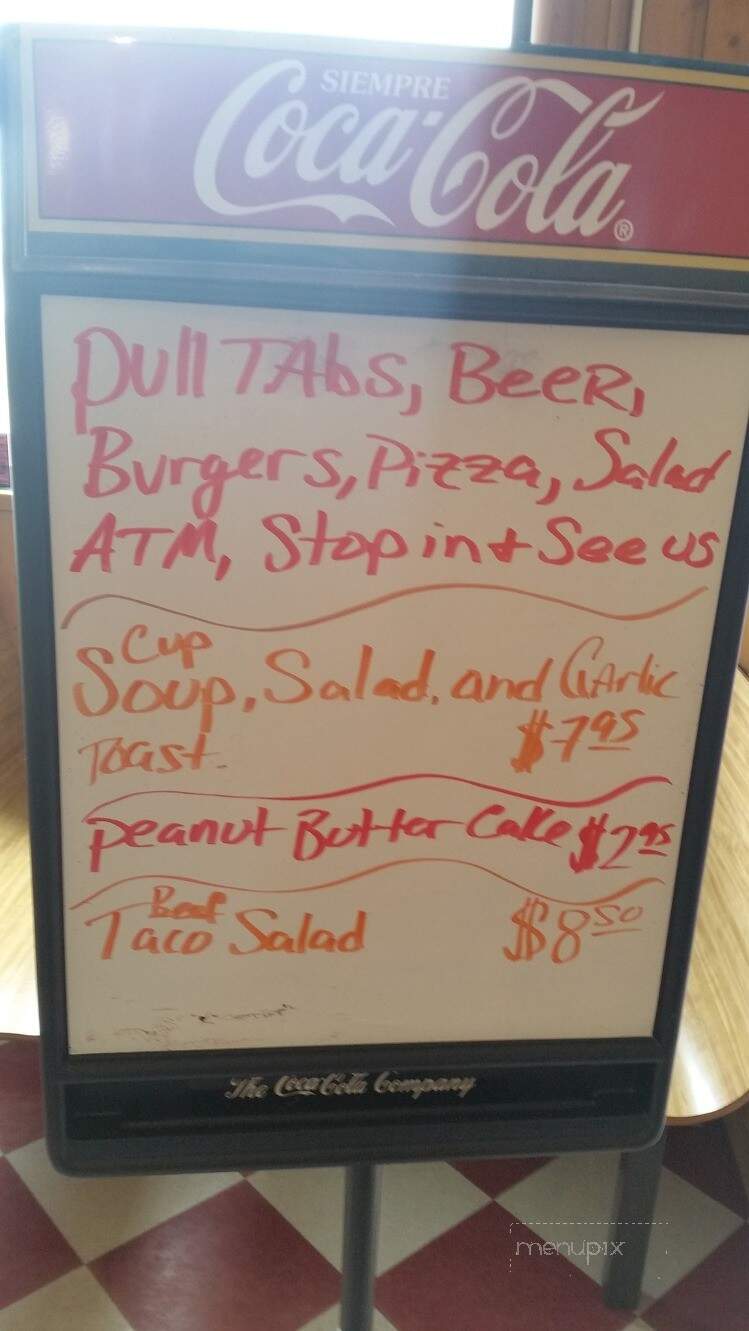 SIEMPRE
Coca-Cola®
Pull TAbs, BeeR,
Burgers, Pizza, Salad
ATM, Stop in + See us
Cup
Soup, Salad, and GArlic
Toast. $7.95
Peanut Butter Cake $2.95
Beef
Taco Salad $8.50
The Coca-Cola Company
menupix